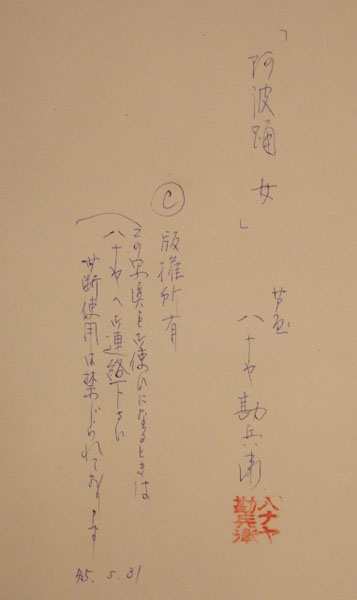 「阿波踊女」
芦屋
ハナヤ勘兵衛
ハナヤ
勘兵衛
Ⓒ 版権所有
この写真も お使ひになるときは
ハナヤへ お連絡下さい
無断使用は禁じられております
45.5.31